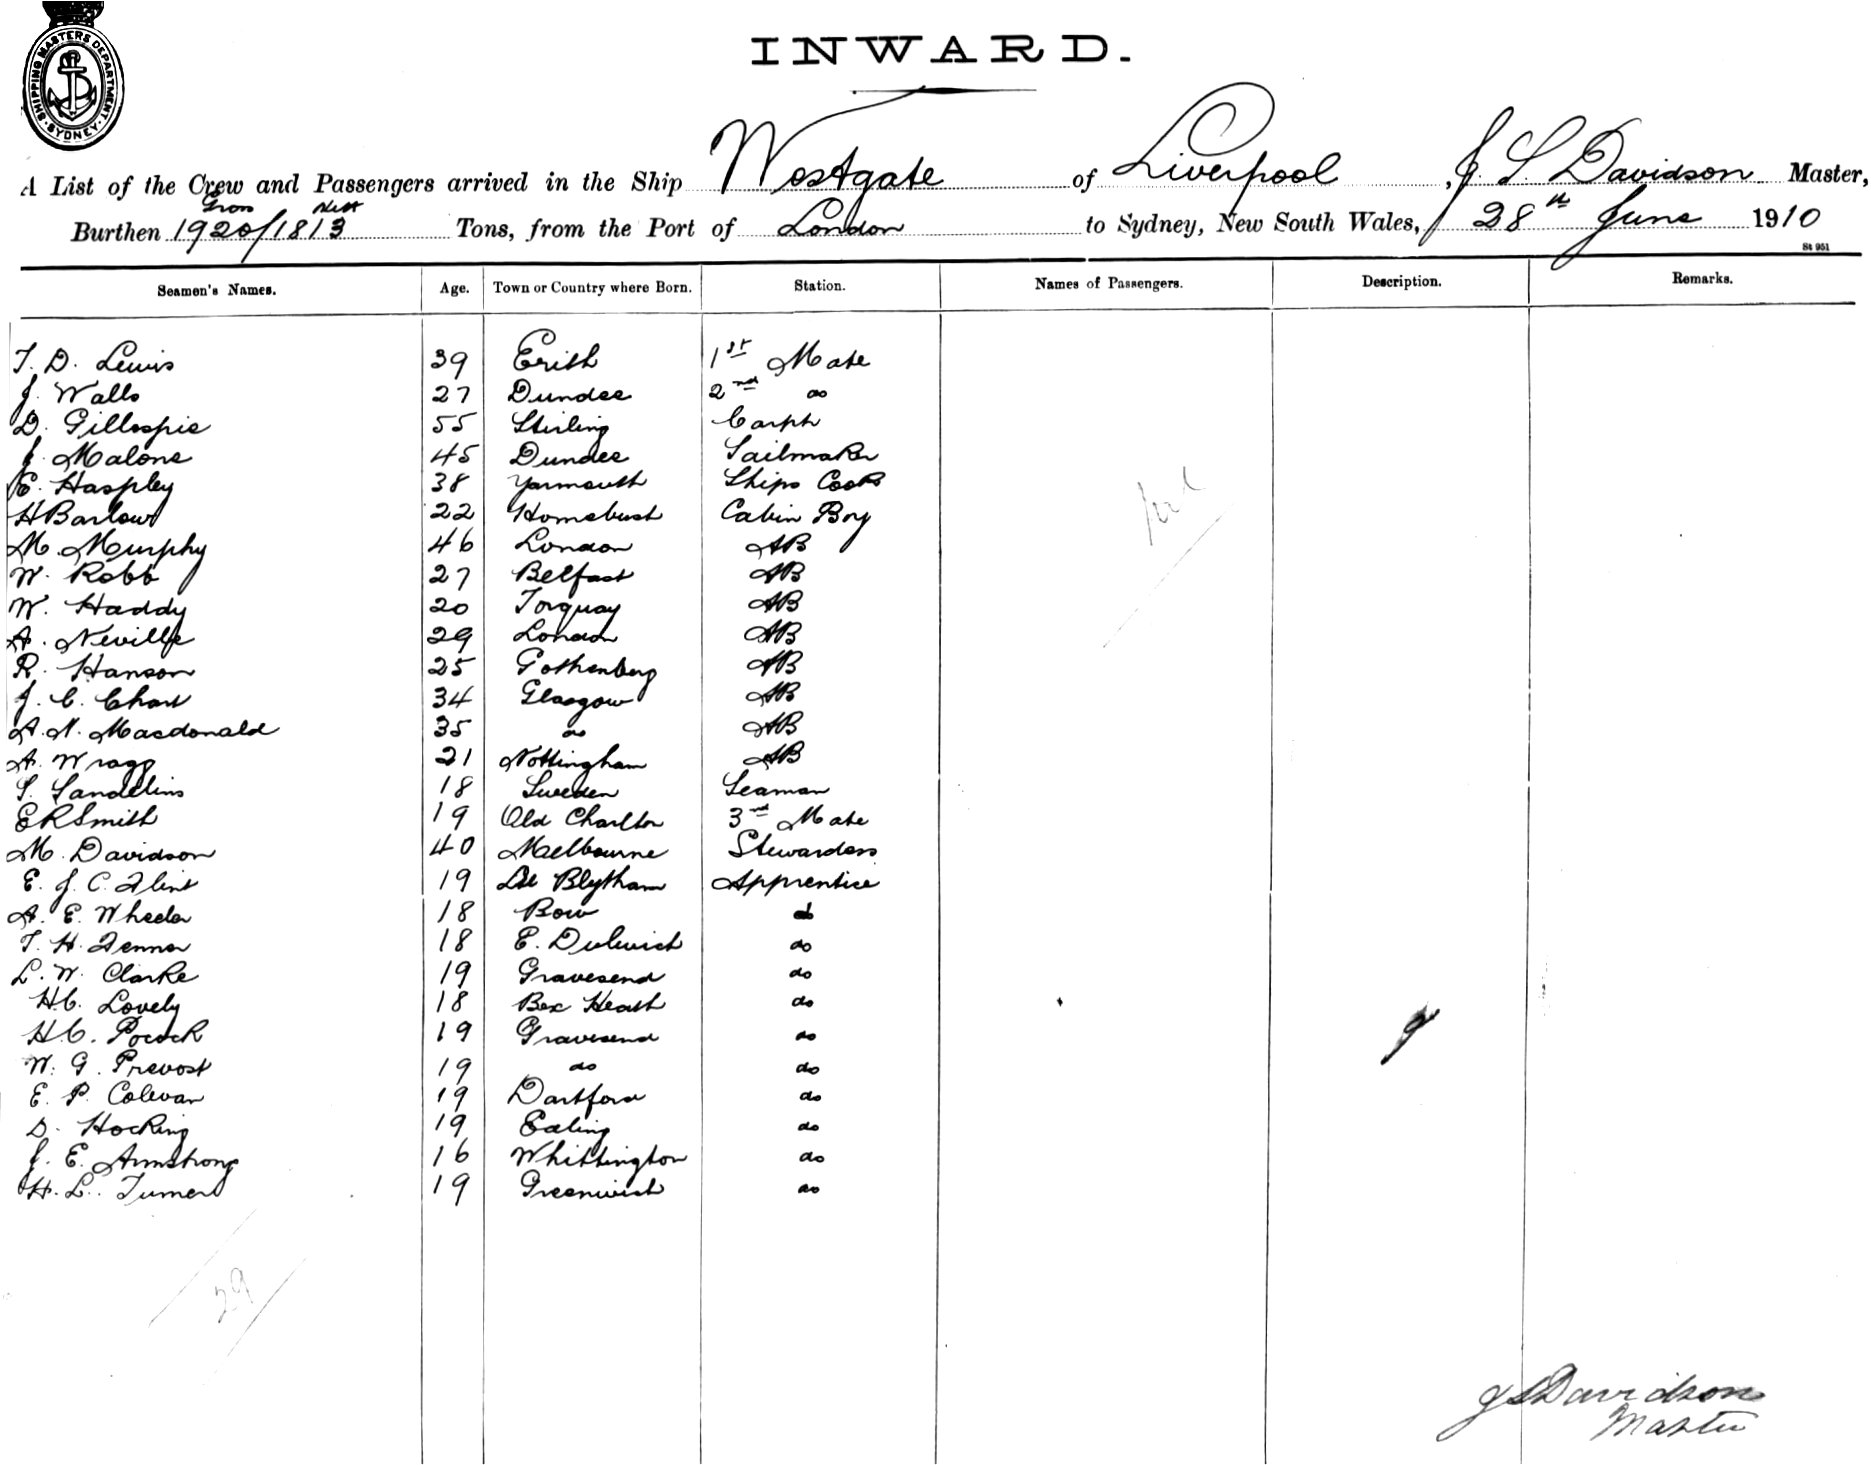 SHIPPING MASTERS DEPARTMENT
SYDNEY
INWARD.
A List of the Crew and Passengers arrived in the Ship Westgate of Liverpool, J. S. Davidson Master,
Gross Nett
Burthen 1920/1813 Tons, from the Port of London to Sydney, New South Wales, 28th June 1910
St 951
Seamen's Names. Age. Town or Country where Born. Station. Names of Passengers. Description. Remarks.
T. D. Lewis 39 Erith 1st Mate
J. Walls 27 Dundee 2nd do
D. Gillespie 55 Stirling Carptr
J. Malone 45 Dundee Sailmaker
E. Haspley 38 Yarmouth Ships Cook
H Barlow 22 Homebush Cabin Boy
M. Murphy 46 London AB
W. Robb 27 Belfast AB
W. Haddy 20 Torquay AB
A. Neville 29 London AB
R. Hanson 25 Gothenberg AB
J. C. Chart 34 Glasgow AB
A. N. Macdonald 35 do AB
A. Wragg 21 Nottingham AB
S. Sandelins 18 Sweden Seaman
E R Smith 19 Old Charlton 3rd Mate
M. Davidson 40 Melbourne Stewardess
E. J. C. Flint 19 Blytham Apprentice
A. E. Wheeler 18 Bow do
T. H. Fenner 18 E. Dulwich do
L. W. Clarke 19 Gravesend do
H. C. Lovely 18 Bex Heath do
H. C. Pocock 19 Gravesend do
W. G. Prevost 19 do do
E. P. Colevan 19 Dartford do
D. Hocking 19 Ealing do
J. E. Armstrong 16 Whittington do
H. L. Turner 19 Greenwich do
29
J S Davidson
Master